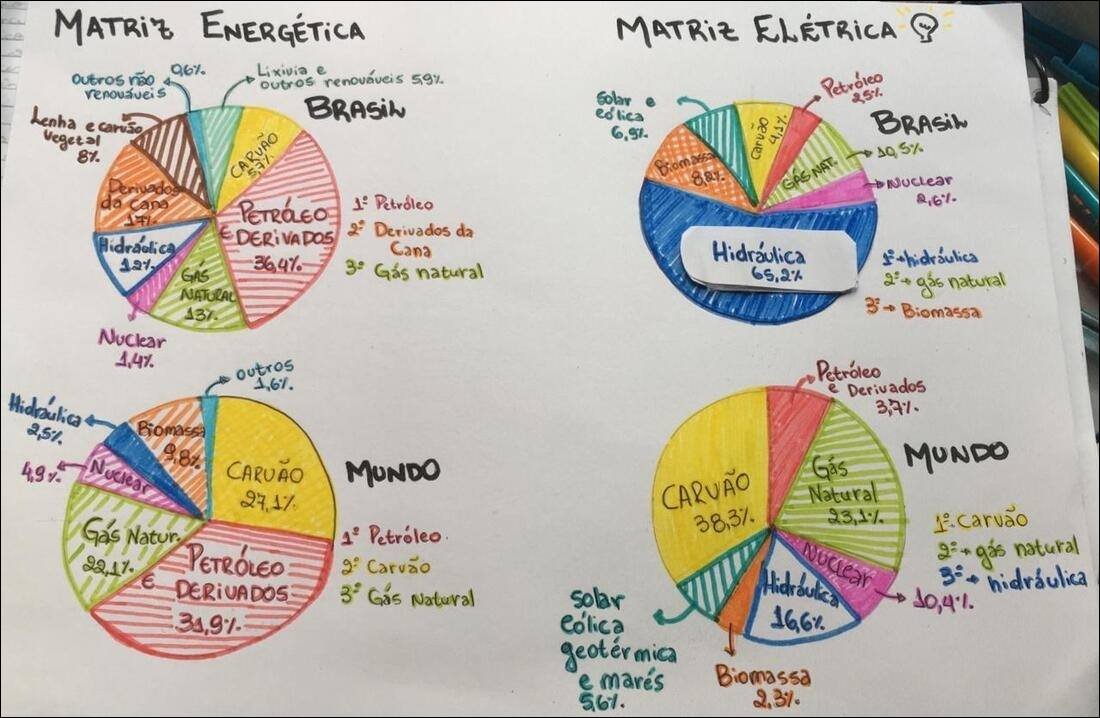 MATRIZ ENERGÉTICA
outros não
renováveis
0,6%.
Lixívia e
outros renováveis 5,9%
BRASIL
Lenha e carvão
vegetal
8%
CARVÃO
5,7%
Derivados
da cana
17%
PETRÓLEO
E DERIVADOS
36,4%
Hidráulica
12%
GÁS
NATURAL
13%
Nuclear
1,4%
1º Petróleo
2º Derivados da
Cana
3º Gás natural
outros
1,6%.
Hidráulica
2,5%
Biomassa
9,8%
4,9%
Nuclear
CARVÃO
27,1%
MUNDO
Gás Natur.
22,1%
PETRÓLEO
E DERIVADOS
31,9%
1º Petróleo
2º Carvão
3º Gás Natural
MATRIZ ELÉTRICA
solar e
eólica
6,9%.
Petróleo
2,5%
Carvão
4,1%
BRASIL
Biomassa
8,2%
GÁS NAT.
10,5%
Nuclear
2,6%
Hidráulica
65,2%
1º→hidráulica
2º→ gás natural
3º→ Biomassa
Petróleo
e Derivados
3,7%
MUNDO
CARVÃO
38,3%
Gás
Natural
23,1%
Nuclear
10,4%
Hidráulica
16,6%
1º Carvão
2º→ gás natural
3º→ hidráulica
solar
eólica
geotérmica
e marés
5,6%
Biomassa
2,3%